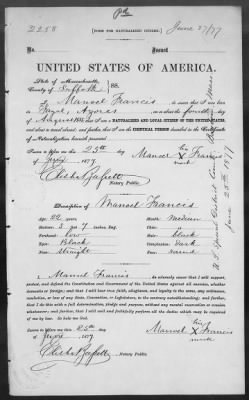 [FORM FOR NATURALIZED CITIZEN.]
June 27/77
No.
Issued
UNITED STATES OF AMERICA.
State of Massachusetts,
County of Suffolk } SS.
I, Manuel Francis, do swear that I was born in
Fayal, Azores, on or about the fourth day of
August, that I am a NATURALIZED AND LOYAL CITIZEN OF THE UNITED STATES,
and about to travel abroad; and further, that I am the IDENTICAL PERSON described in the Certificate
of Naturalization herewith presented.
Sworn to before me this 25th day
of
Manuel Francis
his
mark
Notary Public.
Description of Manuel Francis
Age: 22 years
Mouth: Medium
Stature: 5 ft 7 inches Eng.
Chin:
Forehead: Low
Hair: Black
Eyes: Black
Complexion: Dark
Nose: Straight
Face: Round
I, Manuel Francis, do solemnly swear that I will support,
protect, and defend the Constitution and Government of the United States against all enemies, whether
domestic or foreign; and that I will bear true faith, allegiance, and loyalty to the same, any ordinance,
resolution, or law of any State, Convention, or Legislature, to the contrary notwithstanding; and further,
that I do this with a full determination, pledge, and purpose, without any mental reservation or evasion
whatsoever; and further, that I will well and faithfully perform all the duties which may be required
of me by law. So help me God.
Sworn to before me this 25th day
of
Manuel Francis
his
mark
Notary Public.
June 25th 1877